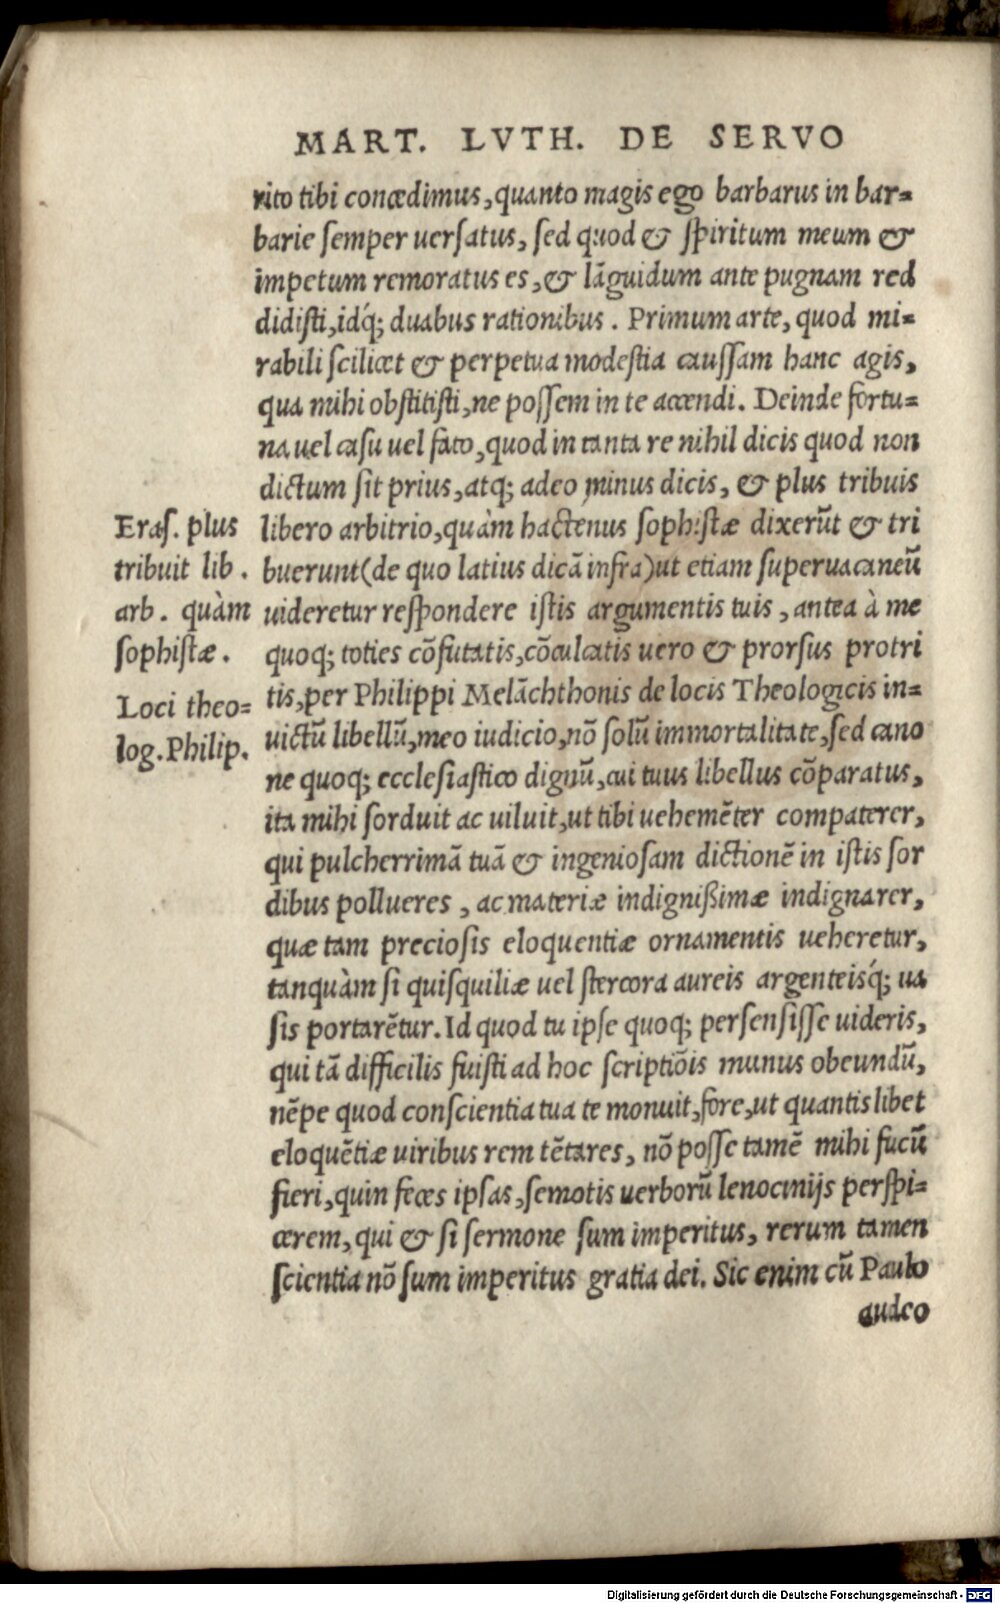 MART. LVTH. DE SERVO
rito tibi concedimus, quanto magis ego barbarus in bar=
barie ſemper uerſatus, ſed quod & ſpiritum meum &
impetum remoratus es, & lãguidum ante pugnam red
didiſti, idq́; duabus rationibus. Primum arte, quod mi=
rabili ſcilicet & perpetua modeſtia cauſſam hanc agis,
qua mihi obſtitiſti, ne poſſem in te accendi. Deinde fortu=
na uel caſu uel fato, quod in tanta re nihil dicis quod non
dictum ſit prius, atq; adeo minus dicis, & plus tribuis
libero arbitrio, quàm hactenus ſophiſtæ dixerũt & tri
buerunt (de quo latius dicã infra) ut etiam ſuperuacaneũ
uideretur reſpondere iſtis argumentis tuis, antea à me
quoq; toties cõfutatis, cõculcatis uero & prorſus protri
tis, per Philippi Melãchthonis de locis Theologicis in=
uictũ libellũ, meo iudicio, nõ ſolũ immortalitate, ſed cano
ne quoq; eccleſiaſtico dignũ, cui tuus libellus cõparatus,
ita mihi ſorduit ac uiluit, ut tibi uehemẽter compaterer,
qui pulcherrimã tuã & ingenioſam dictionẽ in iſtis ſor
dibus pollueres, ac materiæ indignißimæ indignarer,
quæ tam precioſis eloquentiæ ornamentis ueheretur,
tanquàm ſi quiſquiliæ uel ſtercora aureis argenteisq́; ua
ſis portarẽtur. Id quod tu ipſe quoq; perſenſiſſe uideris,
qui tã difficilis fuiſti ad hoc ſcriptiõis munus obeundũ,
nẽpe quod conſcientia tua te monuit, fore, ut quantislibet
eloquẽtiæ uiribus rem tẽtares, nõ poſſe tamẽ mihi fucũ
fieri, quin feces ipſas, ſemotis uerborũ lenocinijs perſpi=
cerem, qui & ſi ſermone ſum imperitus, rerum tamen
ſcientia nõ ſum imperitus gratia dei. Sic enim cũ Paulo
audeo
Eraſ. plus
tribuit lib.
arb. quàm
ſophiſtæ.
Loci theo=
log. Philip.
Digitalisierung gefördert durch die Deutsche Forschungsgemeinschaft - DFG